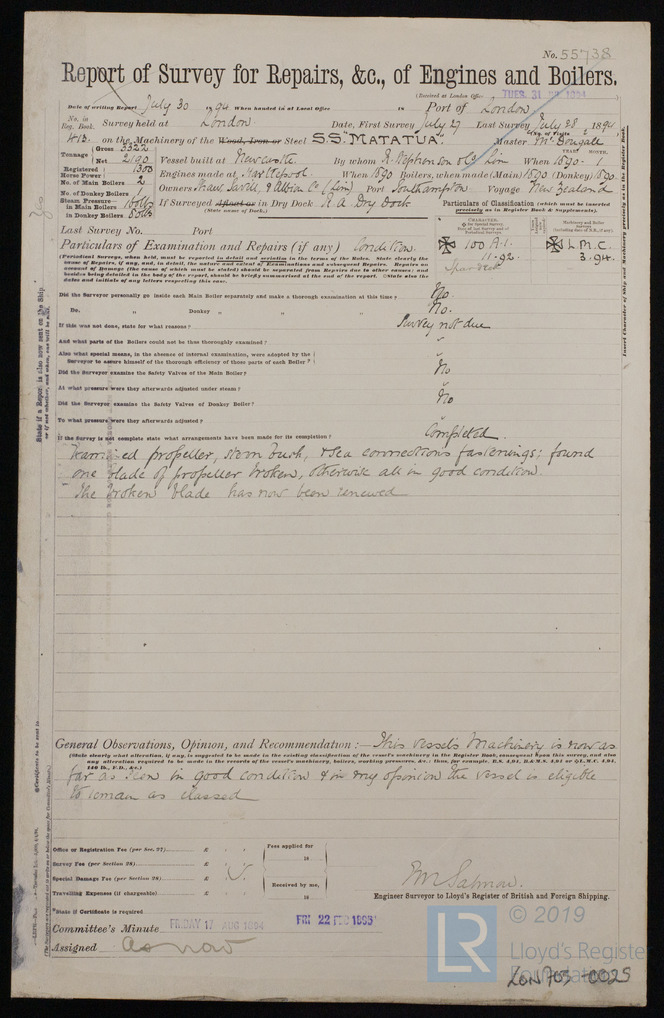 No. 55738
Report of Survey for Repairs, &c., of Engines and Boilers.
(Received at London Office TUES. 31 JUL 1894)
Date of writing Report July 30 1894 When handed in at Local Office 18 Port of London
No. in Reg. Book. Survey held at London Date, First Survey July 27 Last Survey July 28 1894
413 on the Machinery of the Wood, Iron or Steel S.S. "MATATUA" Master McDougall
Tonnage Gross 3322
Net 2190 Vessel built at Newcastle By whom R. Stephenson & Co Lim When 1890
Registered Horse Power 1300 Engines made at Hartlepool When 1890 Boilers, when made (Main) 1890 (Donkey) 1890
No. of Main Boilers 2
No. of Donkey Boilers 1 Owners Shaw, Savill, & Albion Co (Lim) Port Southampton Voyage New Zealand
Steam Pressure in Main Boilers 160 lbs
in Donkey Boilers 80 lbs If Surveyed Afloat or in Dry Dock R. A. Dry Dock
(State name of Dock.)
Particulars of Classification (which must be inserted precisely as in Register Book & Supplements).
Last Survey No. Port
100 A.1. L.M.C.
11.92. 3.94.
Spar deck
Particulars of Examination and Repairs (if any) Condition.
(Periodical Surveys, when held, must be reported in detail and seriatim in the terms of the Rules. State clearly the
cause of Repairs, if any, and, in detail, the nature and extent of Examinations and subsequent Repairs. Repairs on
account of Damage (the cause of which must be stated) should be separated from Repairs due to other causes; and
besides being detailed in the body of the report, should be briefly summarised at the end of the report.
Did the Surveyor personally go inside each Main Boiler separately and make a thorough examination at this time? No
Do. " Donkey " " " No.
If this was not done, state for what reasons? Survey not due
And what parts of the Boilers could not be thus thoroughly examined? "
Also what special means, in the absence of internal examination, were adopted by the
Surveyor to assure himself of the thorough efficiency of those parts of each Boiler? "
Did the Surveyor examine the Safety Valves of the Main Boiler? No
At what pressure were they afterwards adjusted under steam? "
Did the Surveyor examine the Safety Valves of Donkey Boiler? No
To what pressure were they afterwards adjusted? "
If the Survey is not complete state what arrangements have been made for its completion? Completed
Examined propeller, stern bush, & sea connections fastenings; found
one blade of propeller broken, otherwise all in good condition.
The broken blade has now been renewed
General Observations, Opinion, and Recommendation:— This vessel's Machinery is now as
(State clearly what alteration, if any, is suggested to be made in the existing classification of the vessel's machinery in the Register Book, consequent upon this survey, and also
any alteration required to be made in the records of the vessel's machinery, boilers, working pressures, &c.; thus, for example, B.S. 4,94, B.&M.S. 4,94 or L.M.C. 4,94,
140 lb., F.D., &c.)
far as seen in good condition & in my opinion the vessel is eligible
to remain as classed
Office or Registration Fee (per Sec. 27) £
Survey Fee (per Section 28) £
Special Damage Fee (per Section 28) £
Travelling Expenses (if chargeable) £
Fees applied for
18
Received by me,
18
Engineer Surveyor to Lloyd's Register of British and Foreign Shipping.
*State if Certificate is required
Committee's Minute FRIDAY 17 AUG 1894 FRI 22 FEB 1895
Assigned as now
LR © 2019
Lloyd's Register
Foundation
LON 703-0025